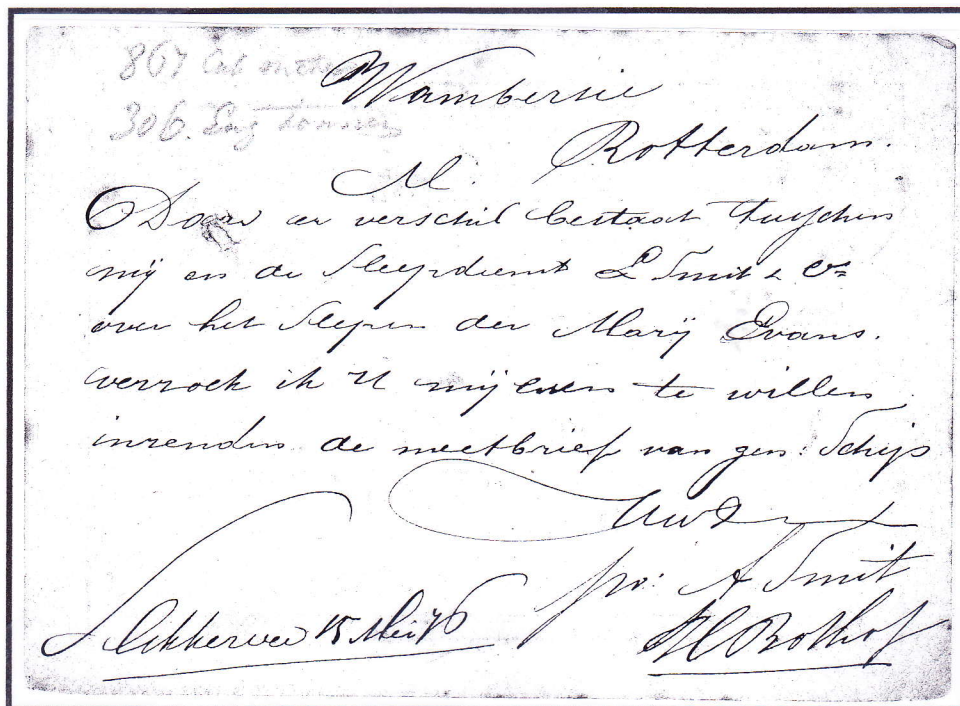 867 Cub
306. Eng tonnen
Wambersie
Rotterdam.
M.
Daar er verschil bestaat tusschen
mij en de Sleepdienst L Smit & Co
over het Slepen der Marij Evans.
verzoek ik U mij even te willen
inzenden de meetbrief van gen: Schip
UwD
po: A Smit
Slikkerveer 15 Mei 76